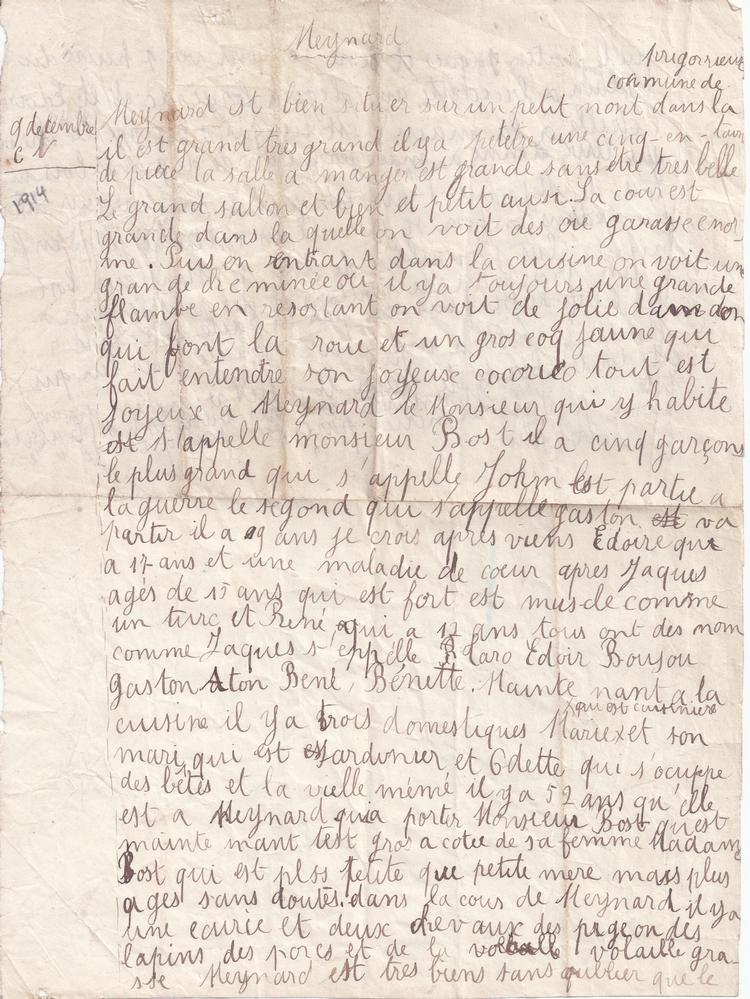 Meynard
prigorrieux
commune de
9 decembre
1914
Meynard est bien situer sur un petit mont dans la
il est grand tres grand il y a petetre une cinq-en-taine
de piece la salle a manger est grande sans etre tres belle
Le grand sallon et bien et petit aussi. La cour est
grande dans la quelle on voit des oie garasse enor
me. Puis en entrant dans la cuisine on voit une
grande cheminée ou il y a toujours une grande
flambe en resortant on voit de jolie daindon
qui font la roue et un gros coq jaune qui
fait entendre son joyeuse cocorico tout est
joyeux a Meynard le Monsieur qui y habite
s'appelle monsieur Bost il a cinq garçons
le plus grand qui s'appelle John est partie a
la guerre le segond qui s'appelle gaston va
partir il a 19 ans je crois apres viens Edoire qui
a 17 ans et une maladie de coeur apres Jaques
agés de 15 ans qui est fort est muscle comme
un turc et René qui a 12 ans tous ont des nom
comme Jaques s'eppelle Edoir Boujou
gaston Aton René, Bénette. Mainte nant a la
cuisine il y a trois domestiques Marie x et son
x qui est cuisinière
mari qui est jardinier et Odette qui s'ocuppe
des bêtes et la vielle mémé il y a 52 ans qu'elle
est a Meynard qui a porter Monsieur Bost qui est
mainte nant test gros a cotee de sa femme Madame
Bost qui est plus petite que petite mere mais plus
ages sans doutes. dans la cour de Meynard il y a
une ecurie et deux chevaux des pigeon des
lapins des porcs et de la volaille gra-
sse Meynard est tres biens sans oublier que le